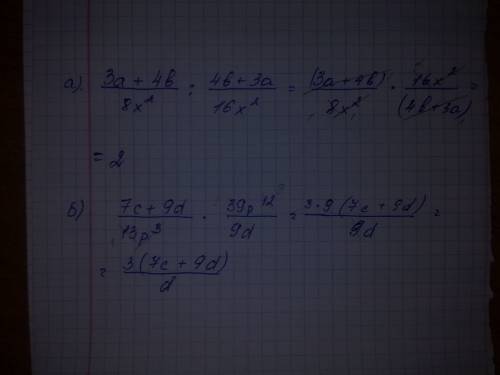 а) (3a + 4b)/(8x²) : (4b + 3a)/(16x²) = (3a + 4b)/(8x²) · (16x²)/(4b + 3a) =
= 2
б) (7c + 9d)/(13p³) · (39p¹²)/(9d) = (3·9(7c + 9d))/(9d) =
= (3(7c + 9d))/d